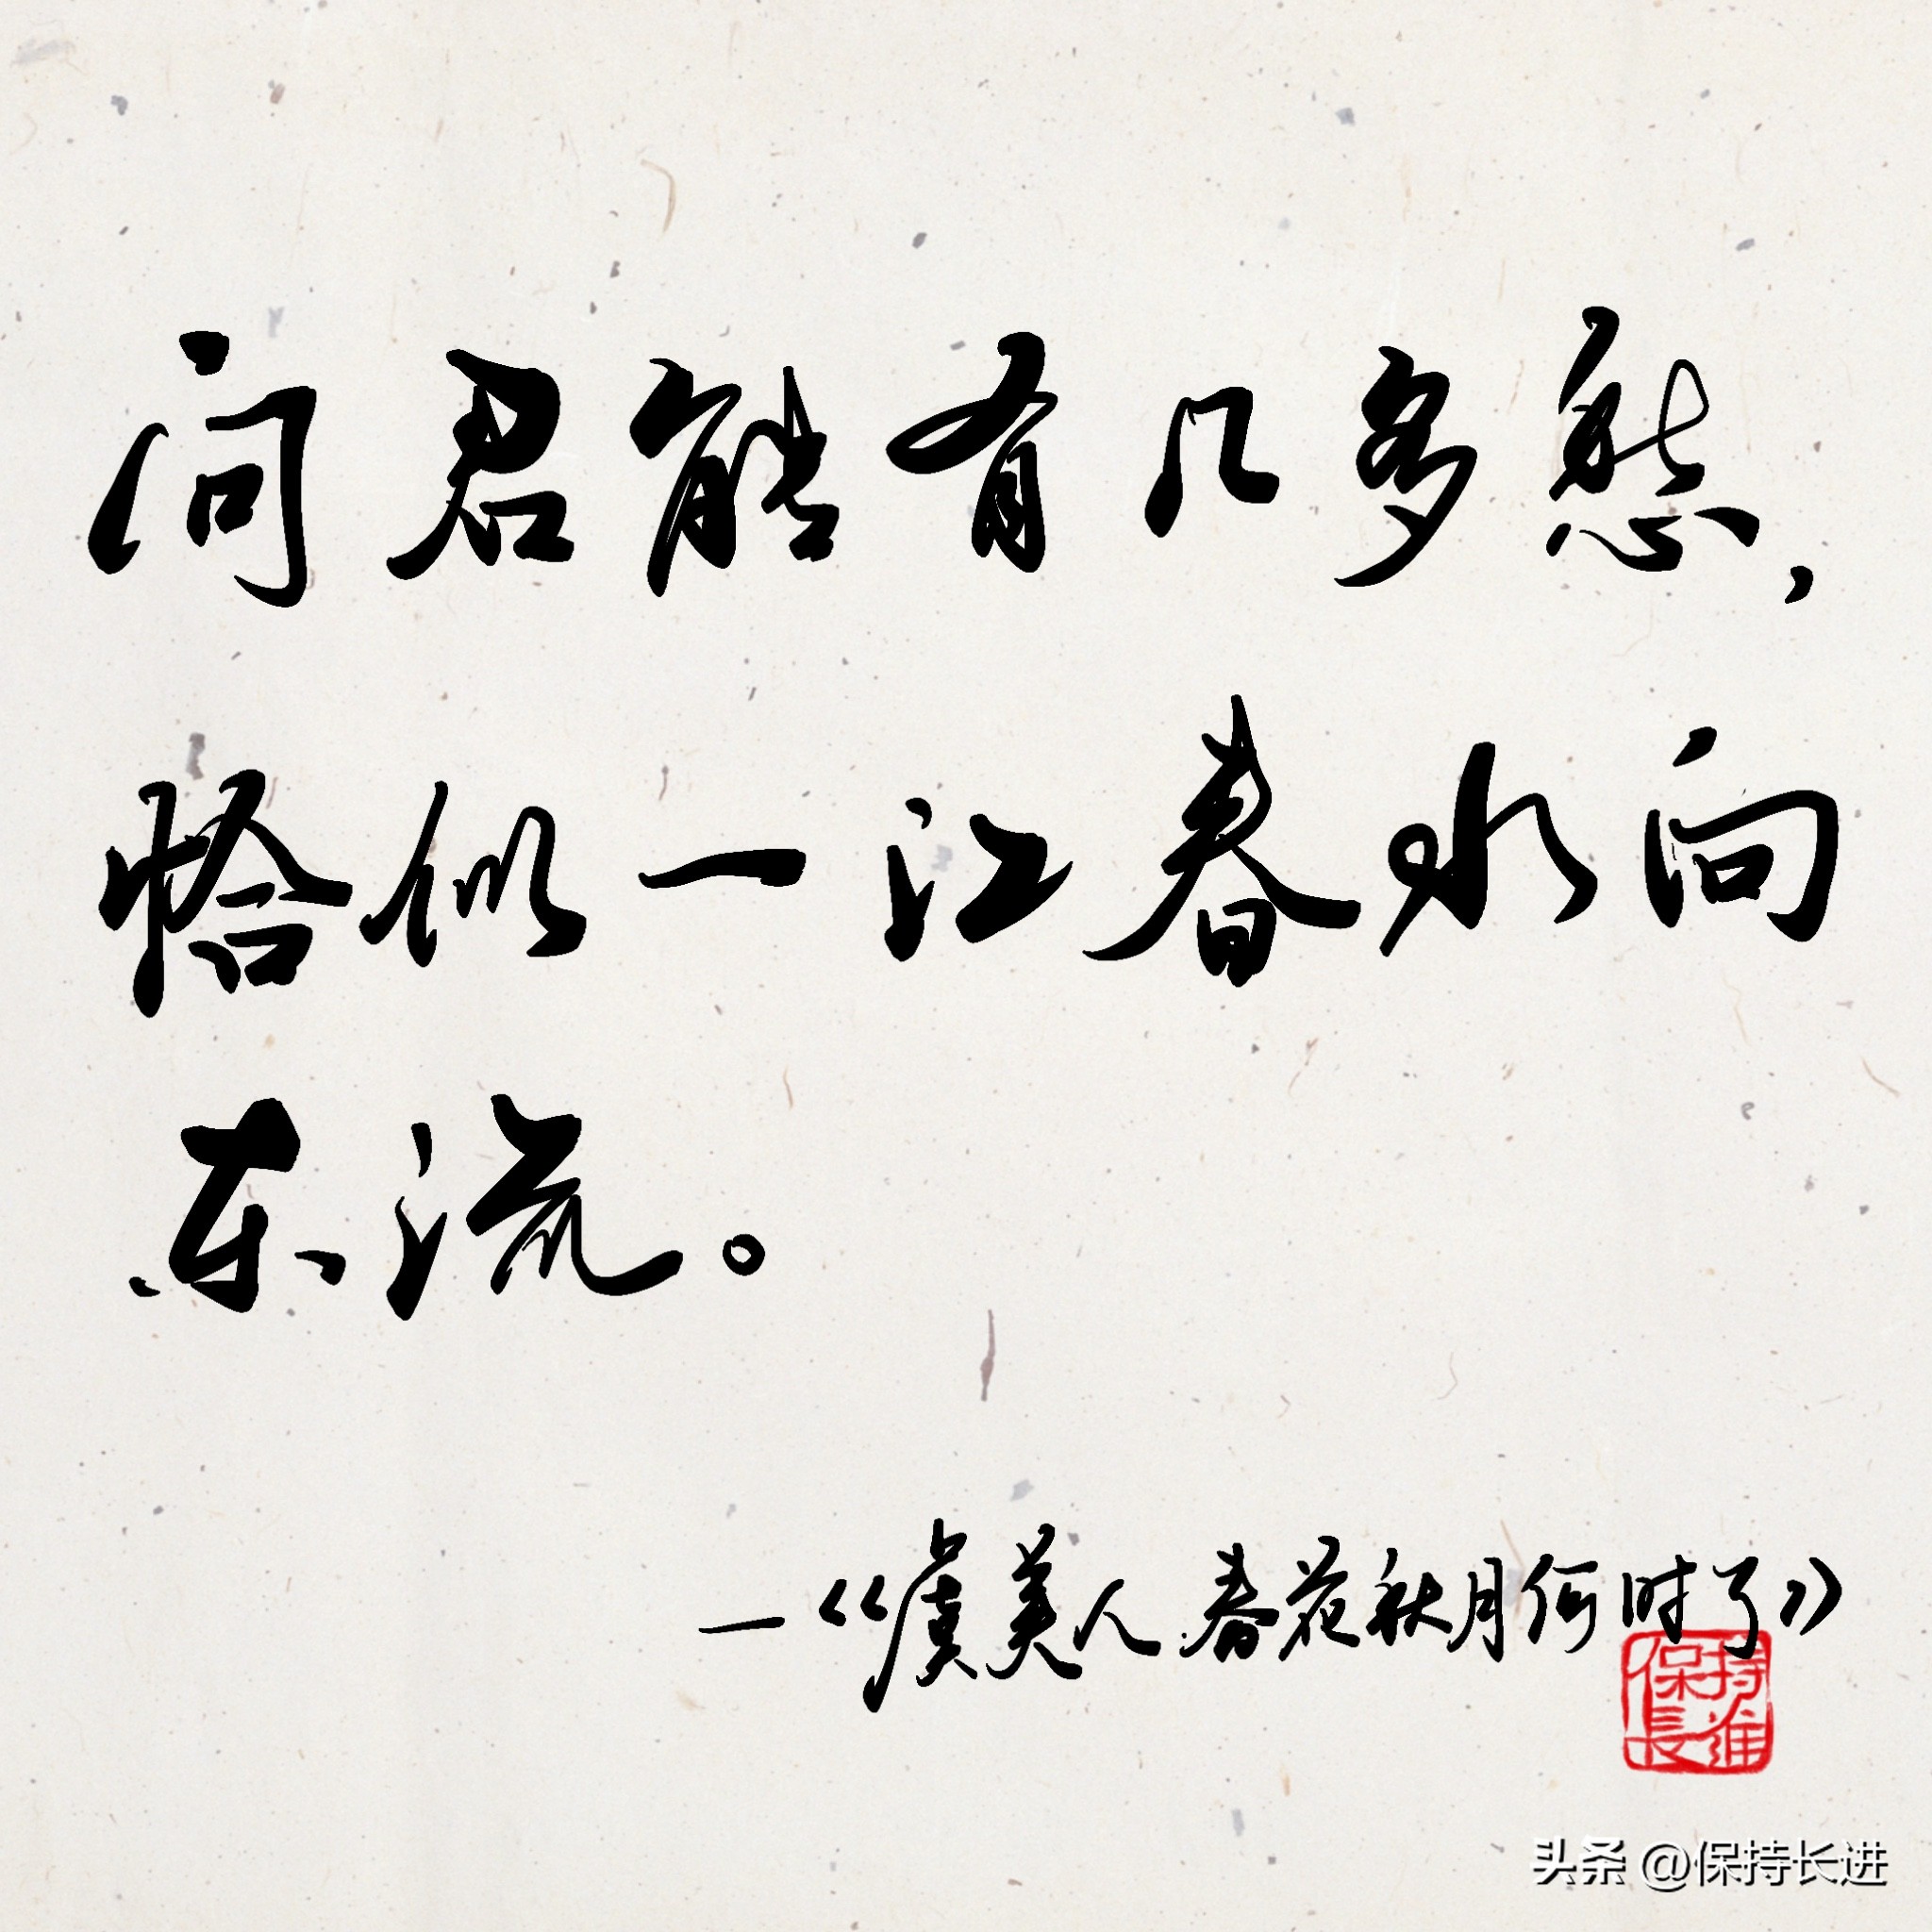 问君能有几多愁，
恰似一江春水向
东流。
—《虞美人·春花秋月何时了》
保持长进
头条 @保持长进